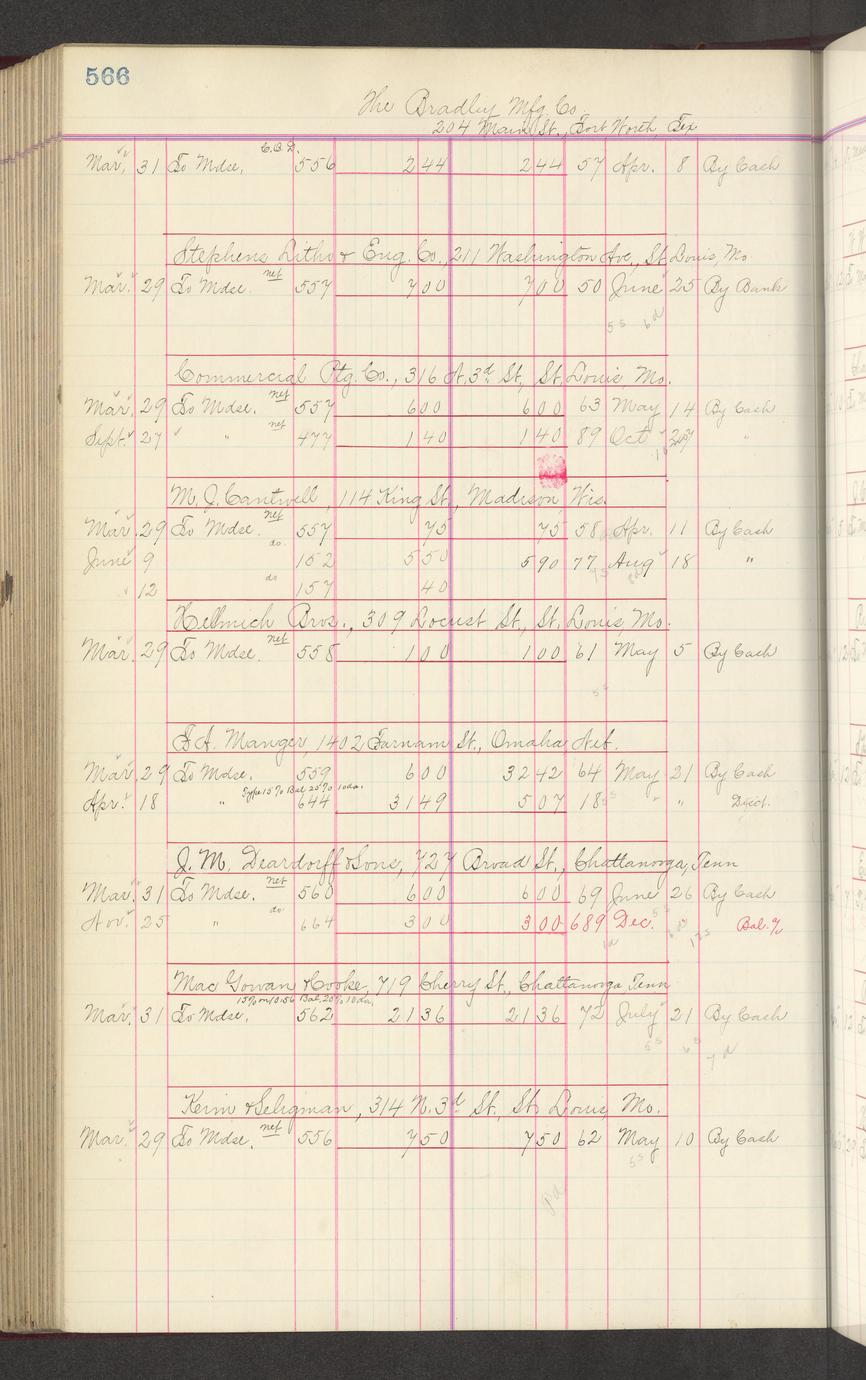 566
The Bradley Mfg. Co.
204 Main St., Fort Worth, Tex
C.O.D.
Mar. 31 To Mdse. 556 2 44 2 44 57 Apr. 8 By Cash
Stephens Litho & Eng. Co., 211 Washington Ave., St. Louis, Mo
Mar. 29 To Mdse. net 557 7 00 7 00 50 June 25 By Bank
Commercial Ptg. Co., 316 N. 3d St., St. Louis, Mo.
Mar. 29 To Mdse. net 557 6 00 6 00 63 May 14 By Cash
Sept. 27 " net 477 1 40 1 40 89 Oct "
M. J. Cantwell, 114 King St., Madison, Wis.
Mar. 29 To Mdse. net 557 75 75 58 Apr. 11 By Cash
June 9 do 152 5 50 5 90 77 Aug 18 "
" 12 do 157 40
Hellmich Bros., 309 Locust St., St. Louis, Mo.
Mar. 29 To Mdse. net 558 1 00 1 00 61 May 5 By Cash
Manger, 1402 Farnam St., Omaha, Neb.
Mar. 29 To Mdse. 559 6 00 32 42 64 May 21 By Cash
Type 15% Bal. 25% 10 da.
Apr. 18 " 644 31 49 5 07 18 " " Disct.
J. M. Deardorff & Sons, 727 Broad St., Chattanooga, Tenn
Mar. 31 To Mdse. net 560 6 00 6 00 69 June 26 By Cash
Nov. 25 " do 664 3 00 3 00 689 Dec. Bal. %
Mac Gowan & Cooke, 719 Cherry St., Chattanooga, Tenn
15% on 10.56 Bal. 25% 10 da.
Mar. 31 To Mdse. 562 21 36 21 36 72 July 21 By Cash
Keim & Seligman, 314 N. 3d St., St. Louis, Mo.
Mar. 29 To Mdse. net 556 7 50 7 50 62 May 10 By Cash